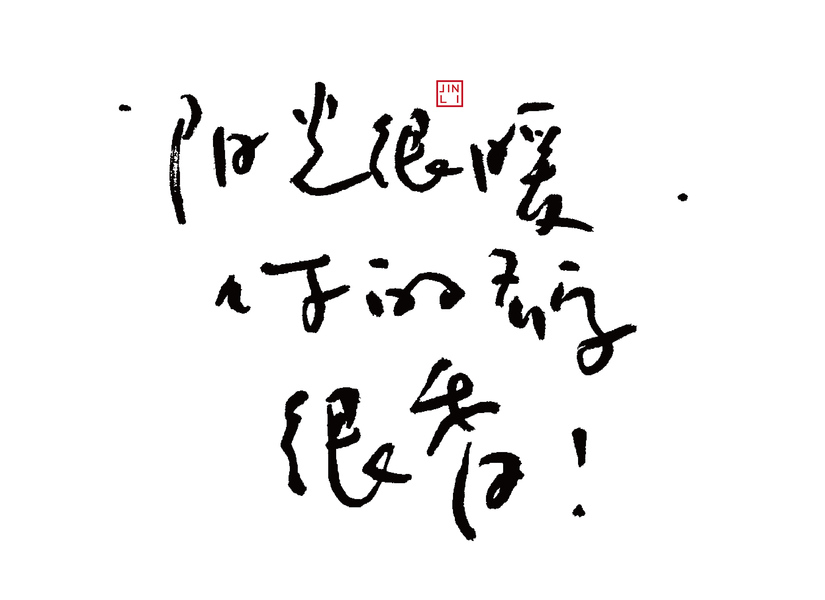 JIN
LI
阳光很暖
的醇
很香!